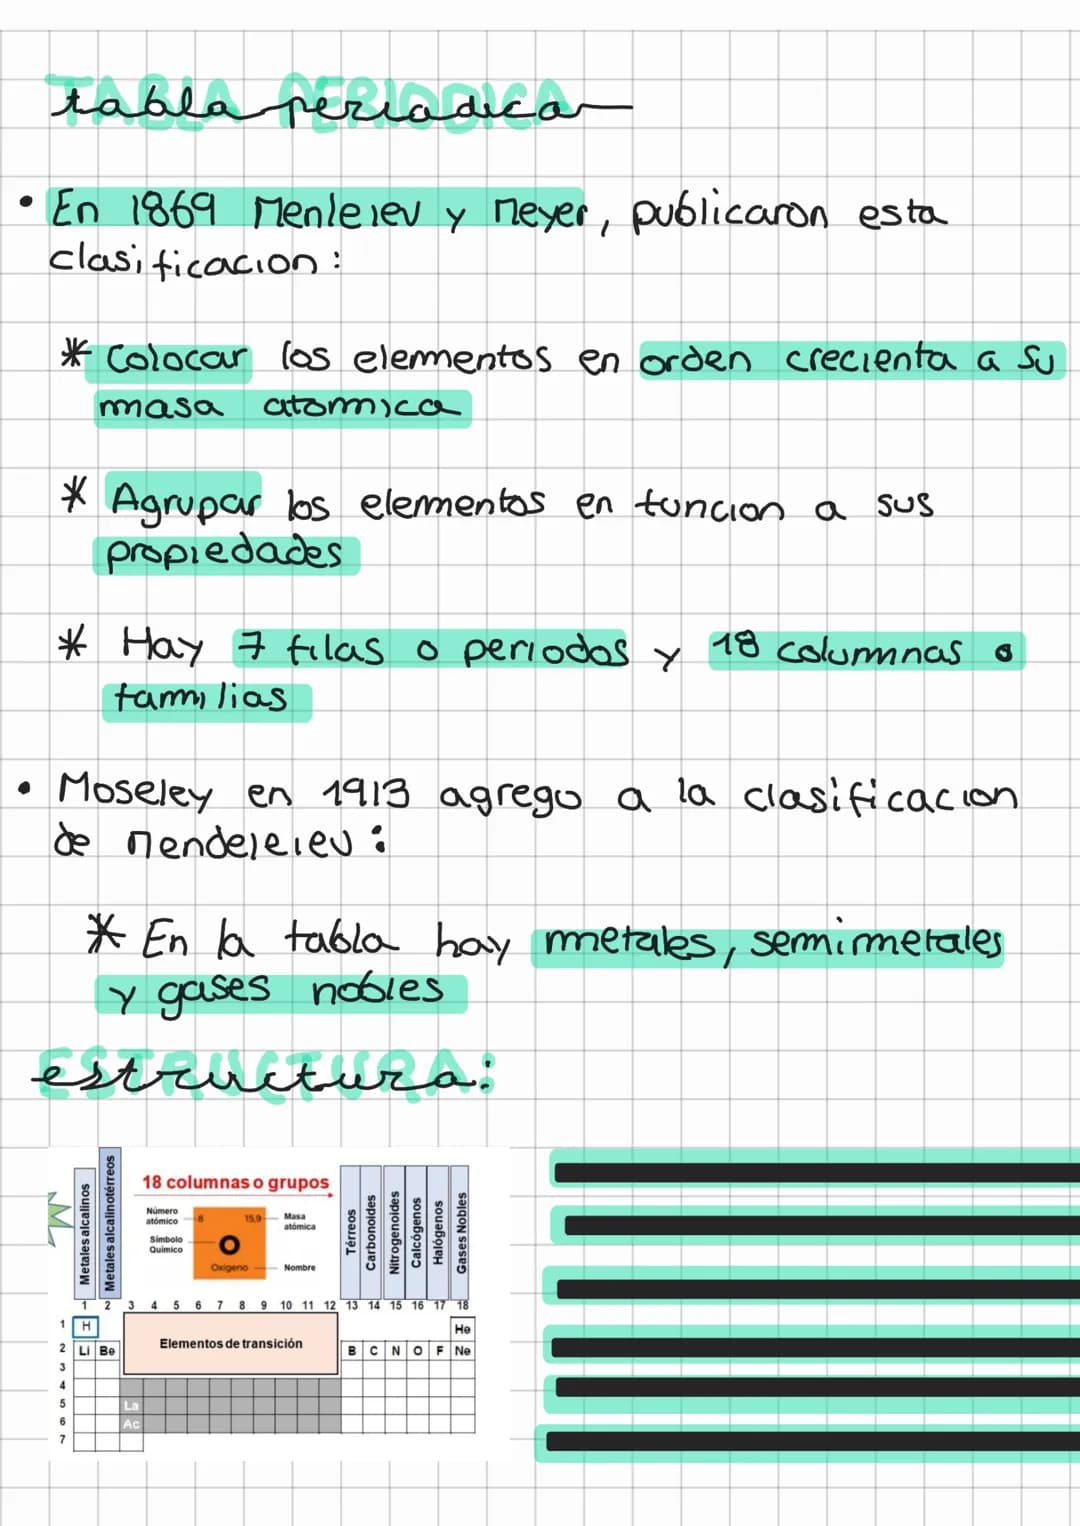 TABLA PERIODICA
tabla periodica
• En 1869 Menleiev y Meyer, publicaron esta
clasificacion:
* Colocar los elementos en orden crecienta a su
masa atomica
* Agrupar los elementos en funcion a sus
propiedades
* Hay 7 filas o periodos y 18 columnas o
familias
• Moseley en 1913 agrego a la clasificacion
de Mendeleiev:
* En la tabla hay metales, semimetales
y gases nobles
ESTRUCTURA:
estructura:
Metales alcalinos
Metales alcalinotérreos
18 columnas o grupos
Número
atómico
8
15,9
Masa
atómica
Símbolo
Químico
O
Oxígeno
Nombre
Térreos
Carbonoides
Nitrogenoides
Calcógenos
Halógenos
Gases Nobles
1 2 3 4 5 6 7 8 9 10 11 12 13 14 15 16 17 18
1 H He
2 Li Be Elementos de transición B C N O F Ne
3
4
5 La
6 Ac
7